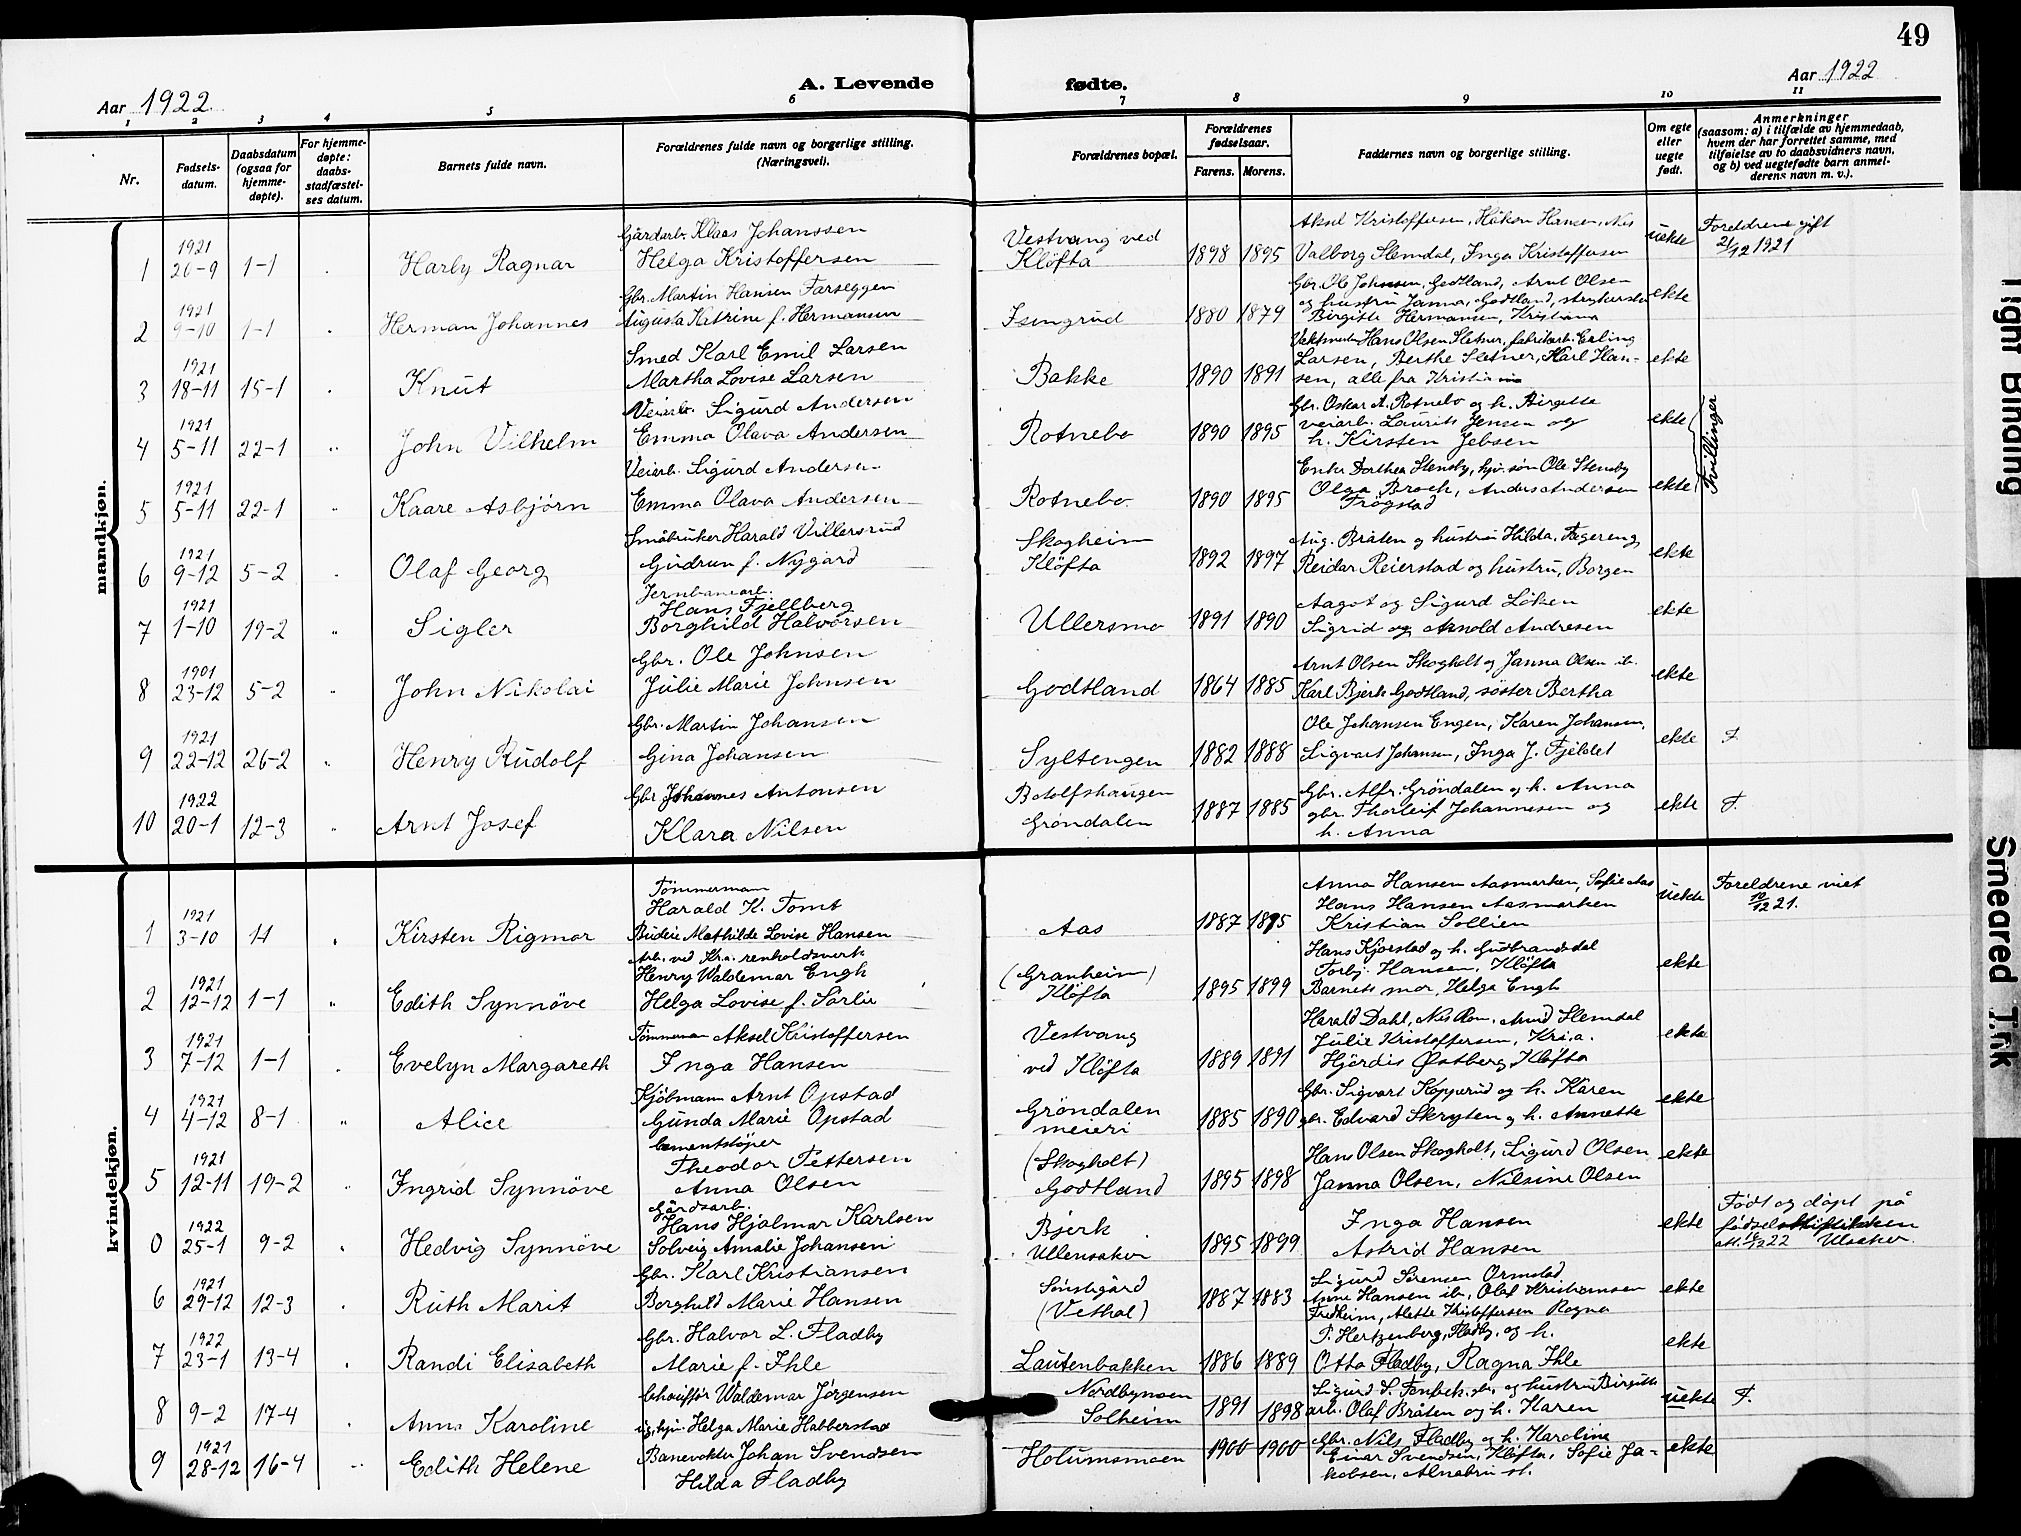 49
Aar 1922.
A. Levende
fødte.
Aar 1922
1 2 3 4 5 6 7 8 9 10 11
Nr.
Fødsels-
datum.
Daabsdatum
(ogsaa for
hjemme-
døpte).
For hjemme-
døpte:
daabs-
stadfæstel-
ses datum.
Barnets fulde navn.
Forældrenes fulde navn og borgerlige stilling.
(Næringsvei).
Forældrenes bopæl.
Forældrenes
fødselsaar.
Farens. Morens.
Faddernes navn og borgerlige stilling.
Om egte
eller
uegte
født.
Anmerkninger
(saasom: a) i tilfælde av hjemmedaab,
hvem der har forrettet samme, med
tilføielse av to daabsvidners navn,
og b) ved uegtefødte barn anmel-
derens navn m. v.).
mandkjøn.
1 1921 20-9 1-1 Harly Ragnar
Gårdarb. Klaas Johanssen
Helga Kristoffersen
Vestvang ved
Kløfta
1898 1895
Aksel Kristoffersen, Håkon Hansen, Nes
Valborg Slemdal, Inga Kristoffersen
uekte
Foreldrene gift
21/12 1921
2 1921 9-10 1-1 Herman Johannes
Gbr. Martin Hansen Farseggen
Augusta Katrine f. Hermansen
Isingrud
1880 1879
Gbr. O. Johnsen, Godtland, Arnt Olsen
og hustru Janna, Godtland,
Birgitte Hermansen, Kristiania
ekte
3 1921 18-11 15-1 Knut
Smed Karl Emil Larsen
Martha Lovise Larsen
Bakke
1890 1891
Hans Olsen Sletner, fabrikarb. Erling
Larsen, Berthe Sletner, Karl Han-
sen, alle fra Kristiania
ekte
4 1921 5-11 22-1 John Vilhelm
Veiarb. Sigurd Andersen
Emma Olava Andersen
Rotnebo
1890 1895
Gbr. Oskar A. Rotnebo og h. Birgitte
veiarb. Laurits Jensen og
h. Kirsten Jebsen
ekte
Tvillinger
5 1921 5-11 22-1 Kaare Asbjørn
Veiarb. Sigurd Andersen
Emma Olava Andersen
Rotnebo.
1890 1895
Enke Dorthea Stensby, hjv. søn Ole Stensby
Olga Broch, Anders Andersen
Frogstad
ekte
6 1921 9-12 5-2 Olaf Georg
Småbruker Harald Villersrud
Gudrun f. Nygård
Skogheim
Kløfta
1892 1897
Aug. Bråten og hustru Hilda, Fagereng,
Reidar Reierstad og hustru, Borgen
ekte
7 1921 1-10 19-2 Sigler
Jernbanearb.
Hans Fjellberg
Borghild Halvorsen
Ullersmo
1891 1890
Aagot og Sigurd Løken
Sigrid og Arnold Andresen
ekte
8 1901 23-12 5-2 John Nikolai
Gbr. Ole Johnsen
Julie Marie Johnsen
Godtland
1864 1885
Arnt Olsen Skogholt og Janna Olsen ib.
Karl Bjerke Godtland, søster Bertha
ekte
9 1921 22-12 26-2 Henry Rudolf
Gbr. Martin Johansen
Gina Johansen
Syltengen
1882 1888
Ole Johansen Engen, Karen Johansen,
Sigvart Johansen, Inga J. Fjeldet
ekte
F.
10 1922 20-1 12-3 Arnt Josef
Gbr Johannes Antonsen
Klara Nilsen
Botolfshaugen
Grøndalen
1887 1885
Gbr. Alfr. Grøndalen og h. Anna
gbr. Thorleif Johannesen og
h. Anna
ekte
F.
kvindekjøn.
1 1921 3-10 Kirsten Rigmor
Tømmermann
Harald K. Tomt
Budeie Mathilde Lovise Hansen
Aas
1887 1895
Anna Hansen Aasmarken, Sofie Aas
Hans Hansen Aasmarken
Kristian Sollien
uekte
Foreldrene viet
10/12 21.
2 1921 12-12 1-1 Edith Synnöve
Arb. ved Kra. renholdsverk
Henry Waldemar Engh
Helga Lovise f. Sørlie
(Granheim)
Kløfta
1895 1899
Hans Kjorstad og h. Gudbrandsdal
Torbj. Hansen, Kløfta
Barnets mor, Helga Engh
ekte
3 1921 7-12 1-1 Evelyn Margareth
Tømmerman Aksel Kristoffersen
Inga Hansen
Vestvang
ved Kløfta
1889 1891
Harald Dahl, Nes Rom. Arnd Slemdal
Julie Kristoffersen, Kr.a.
Hjördis Østberg, Kløfta
ekte
4 1921 4-12 8-1 Alice
Kjøbmann Arnt Opstad
Gunda Marie Opstad
Gröndalen
meieri
1885 1890
Gbr. Sigvart Kopperud og h. Karen
gbr. Edvard Skryten og h. Annette
ekte
5 1921 12-11 19-2 Ingrid Synnöve
Cementstøper
Theodor Pettersen
Anna Olsen
(Skogholt)
Godtland
1895 1898
Hans Olsen Skogholt, Sigurd Olsen
Janna Olsen, Nilsine Olsen
ekte
0 1922 25-1 9-2 Hedvig Synnöve
Gårdsarb.
Hans Hjalmar Karlsen
Solveig Amalie Johansen
Bjerk
Ullensaker
1895 1899
Inga Hansen
Astrid Hansen
ekte
Født og døpt på
22 Ulsaker.
6 1921 29-12 12-3 Ruth Marit
Gbr. Karl Kristiansen
Borghild Marie Hansen
Sønstigård
(Vethal)
1887 1883
Sigurd Sørensen Ormstad
Anne Hansen ib., Olaf Kristiansen
Fredheim, Alette Kristoffersen Ragna
ekte
7 1922 23-1 13-4 Randi Elisabeth
Gbr. Halvor L. Fladby
Marie f. Ihle
Lautenbakken
1886 1889
P. Hertzenberg, Fladby, og h.
Otto Fladby, Ragna Ihle
ekte
8 9-2 17-4 Anna Karoline
Chauffør Waldemar Jørgensen
ug. kvin. Helga Marie Habberstad
Nordbymoen
Solheim
1891 1898
og hustru Birgitte
arb. Olaf Bråten og h. Karen
uekte
F.
9 1921 28-12 16-4 Edith Helene
Banevokter Johan Svendsen
Hilda Fladby
Holumsmoen
1900 1900
Gbr. Nils Fladby og h. Karoline
Einar Svendsen, Kløfta, Sofie Ja-
kobsen, Alnabru st.
ekte
Tight Binding
Smeared Ink